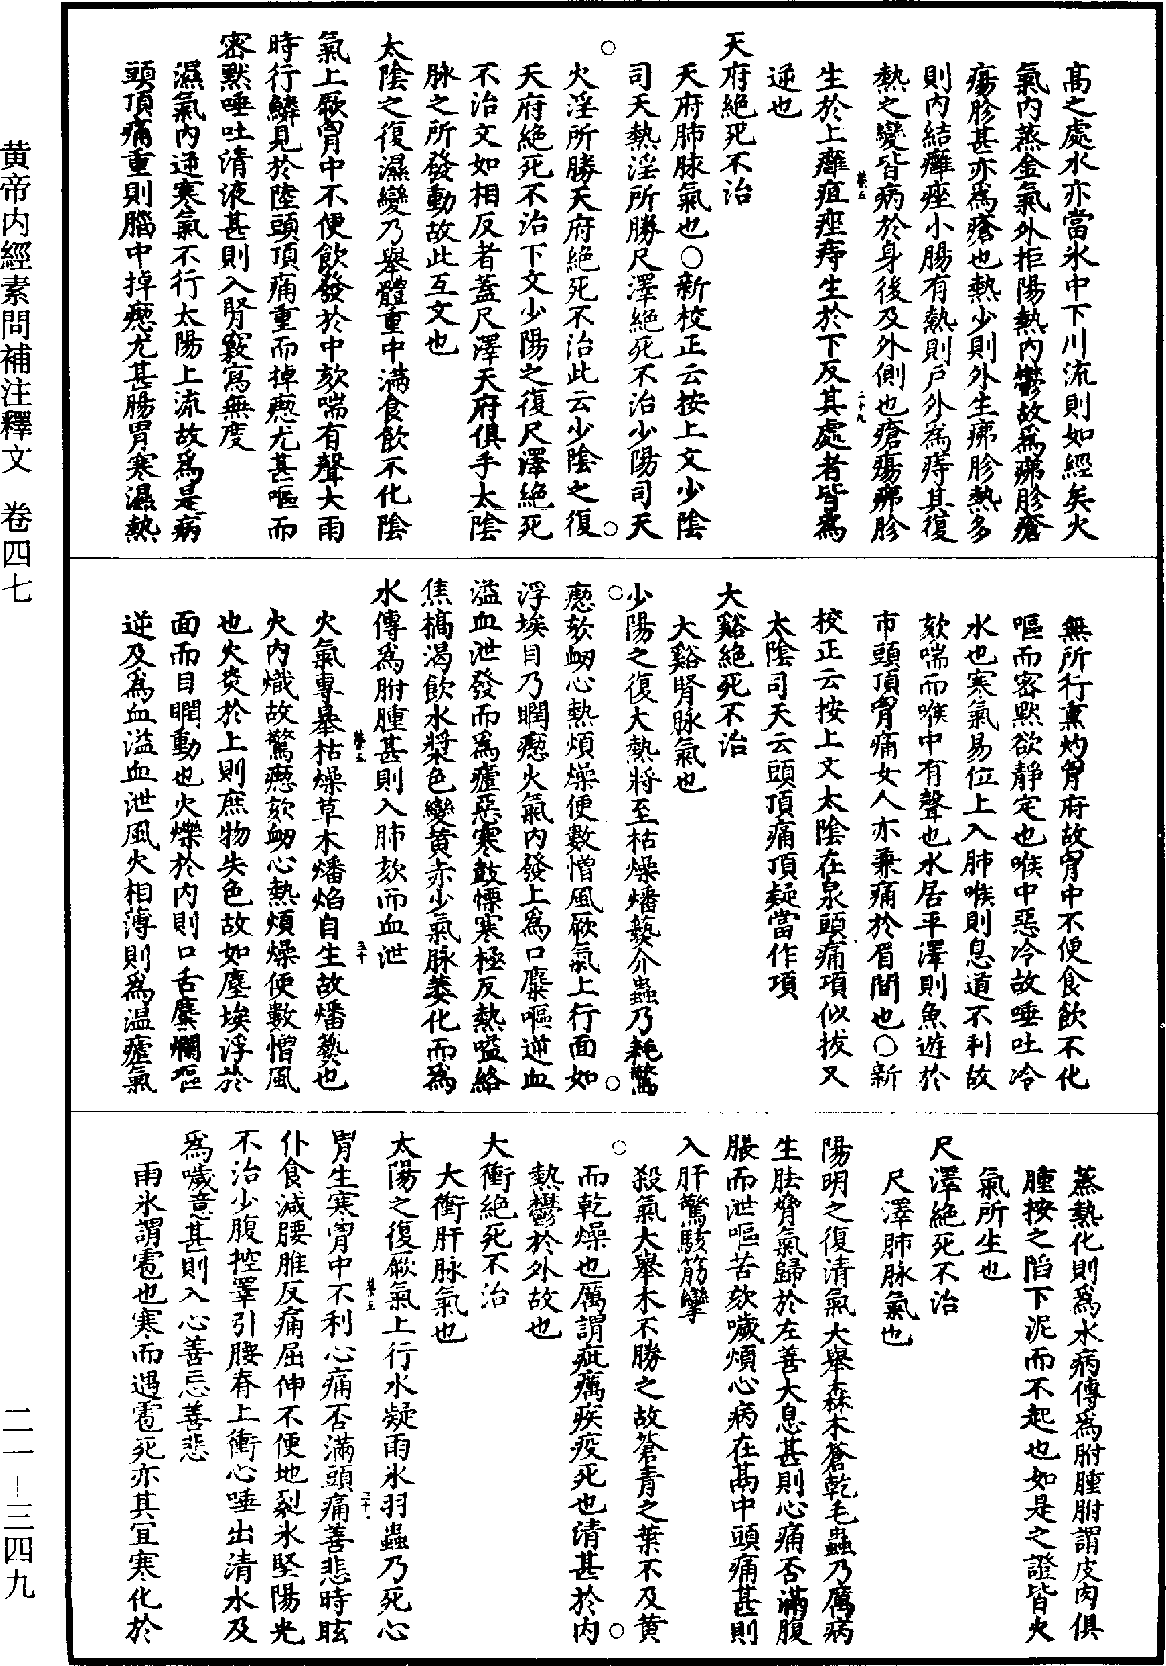 高之處水亦當氷中下川流則如經矣火
氣內蒸金氣外拒陽熱內鬱故爲疿胗瘡
瘍胗甚亦爲瘡也熱少則外生疿胗熱多
則內結癰痤小腸有熱則戶外爲痔其復
熱之變皆病於身後及外側也瘡瘍疿胗
生於上癰疽痤痔生於下反其處者皆爲
逆也
天府絕死不治
天府肺脉氣也○新校正云按上文少陰
司天熱淫所勝尺澤絕死不治少陽司天
火淫所勝天府絕死不治此云少陰之復
天府絕死不治下文少陽之復尺澤絕死
不治文如相反者蓋尺澤天府俱手太陰
脉之所發動故此互文也
太陰之復濕變乃舉體重中滿食飲不化陰
氣上厥胷中不便飲發於中欬喘有聲大雨
時行鱗見於陸頭頂痛重而掉瘛尤甚嘔而
密默唾吐清液甚則入腎竅寫無度
濕氣內逆寒氣不行太陽上流故爲是病
頭頂痛重則腦中掉瘛尤甚腸胃寒濕熱
無所行熏灼胷府故胷中不便食飲不化
嘔而密默欲靜定也喉中惡冷故唾吐冷
水也寒氣易位上入肺喉則息道不利故
欬喘而喉中有聲也水居平澤則魚遊於
市頭頂胷痛女人亦兼痛於眉間也○新
校正云按上文太陰在泉頭痛項似拔又
太陰司天云頭頂痛頂疑當作項
大谿絕死不治
大谿腎脉氣也
少陽之復大熱將至枯燥燔爇介蟲乃耗驚
瘛欬衂心熱煩燥便數憎風厥氣上行面如
浮埃目乃瞤瘛火氣內發上爲口麋嘔逆血
溢血泄發而爲瘧惡寒鼓慄寒極反熱嗌絡
焦槁渴飲水漿色變黃赤少氣脉萎化而爲
水傳爲胕腫甚則入肺欬而血泄
火氣專暴枯燥草木燔焰自生故燔爇也
火內熾故驚瘛欬衂心熱煩燥便數憎風
也火炎於上則庶物失色故如塵埃浮於
面而目瞤動也火爍於內則口舌麋爛嘔
逆及爲血溢血泄風火相薄則爲温瘧氣
蒸熱化則爲水病傳爲胕腫胕謂皮肉俱
腫按之陷下泥而不起也如是之證皆火
氣所生也
尺澤絕死不治
尺澤肺脉氣也
陽明之復清氣大舉森木蒼乾毛蟲乃厲病
生胠脅氣歸於左善大息甚則心痛否滿腹
脹而泄嘔苦欬噦煩心病在鬲中頭痛甚則
入肝驚駭筋攣
殺氣大舉木不勝之故蒼青之葉不及黃
而乾燥也厲謂疵癘疾疫死也清甚於內
熱鬱於外故也
大衝絕死不治
大衝肝脉氣也
太陽之復厥氣上行水凝雨氷羽蟲乃死心
胃生寒胷中不利心痛否滿頭痛善悲時眩
仆食減腰脽反痛屈伸不便地裂氷堅陽光
不治少腹控睪引腰脊上衝心唾出清水及
爲噦意甚則入心善忘善悲
雨氷謂雹也寒而遇雹死亦其宜寒化於
黄帝内經素問補注釋文　卷四七
二一－三四九